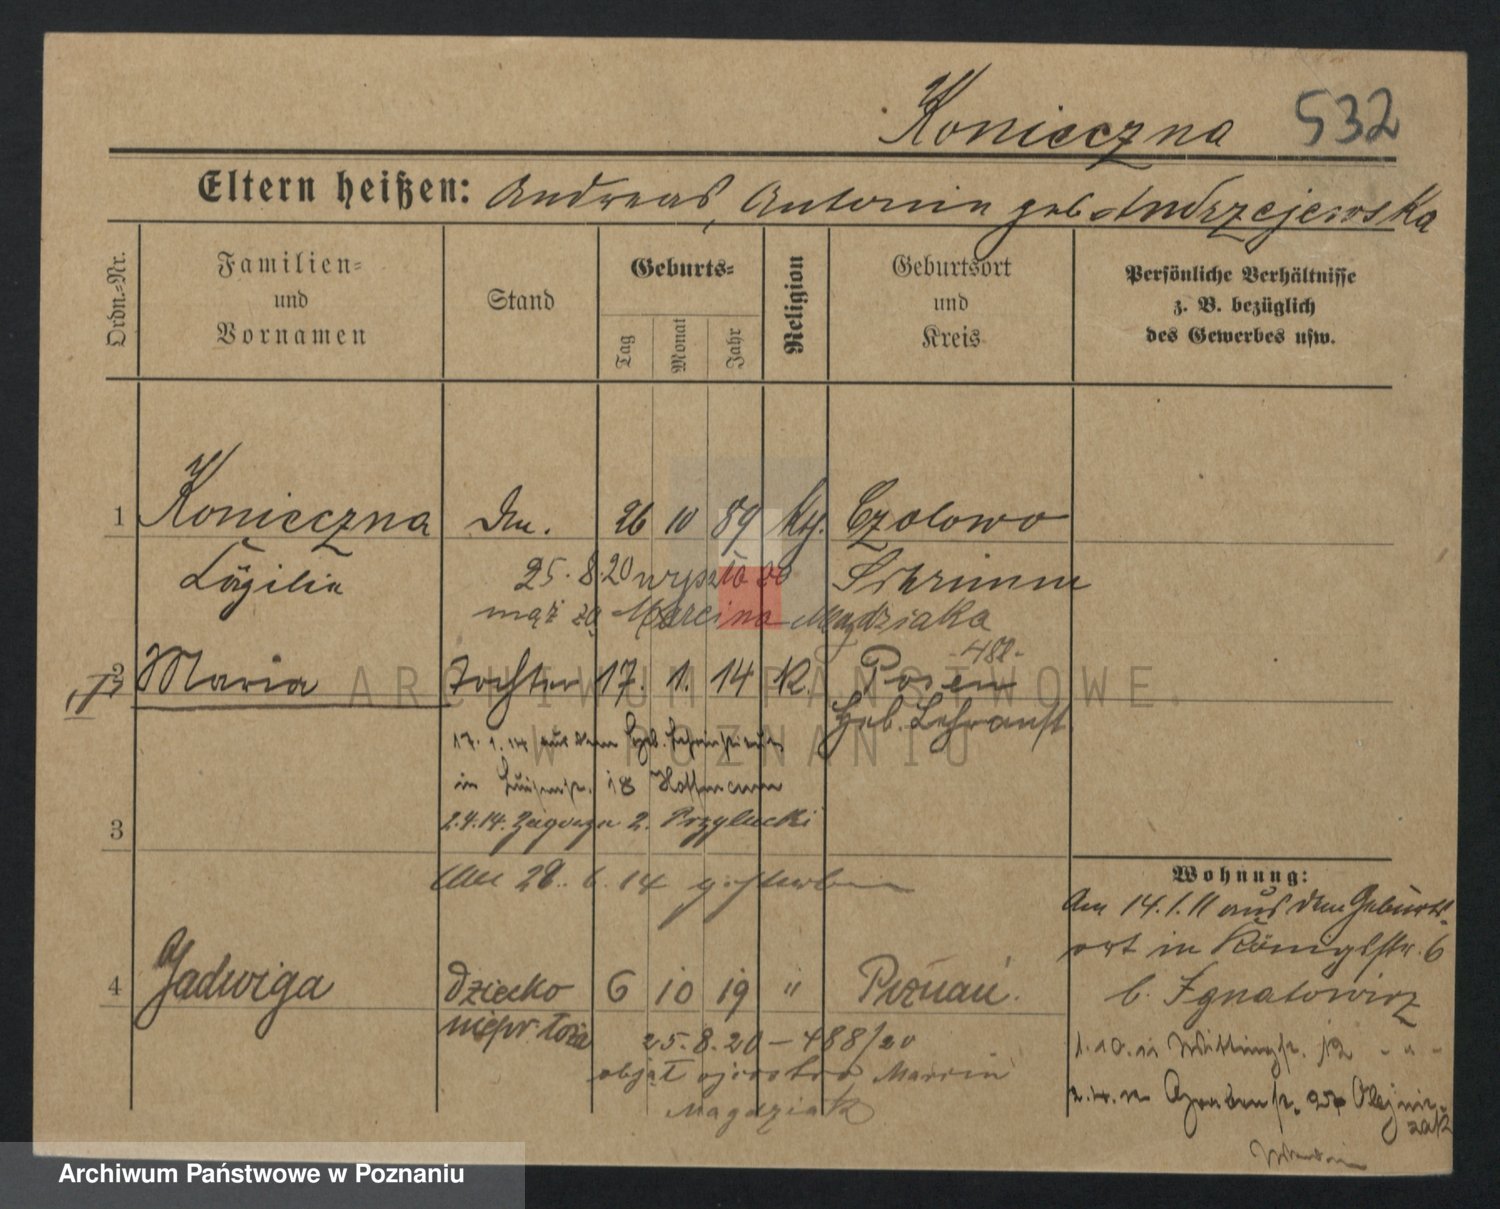 Konieczna 532
Eltern heißen: Andreas, Antonin geb Andrzejewska
Ordn.-Nr.
Familien-
und
Vornamen
Stand
Geburts-
Tag
Monat
Jahr
Religion
Geburtsort
und
Kreis
Persönliche Verhältnisse
z. B. bezüglich
des Gewerbes usw.
1 Konieczna 26 10 89 Czolowo
Cäzilie 25.8.20 wyszła za Schrimm
mąż za Marcina Magdziaka
2 Maria Tochter 17. 1. 14 K. Posen
Heb. Lehranst
17.1.14 aus dem Heb.
in 18 Hoffmann
3 2.4.14. Zagorze 2. Przylucki
6.14 gestorben
4 Jadwiga dziecko 6 10 19 " Poznań.
25.8.20 – 488/20
objął ojcostwo Marcin
Magdziak
Wohnung:
Am 14.1.11 aus dem Geburts-
ort in Königstr. 6
b. Ignatowicz
1.10.11 12 - " -
Grabenstr. 25 Olejni-
zak
ARCHIWUM PAŃSTWOWE
W POZNANIU
Archiwum Państwowe w Poznaniu